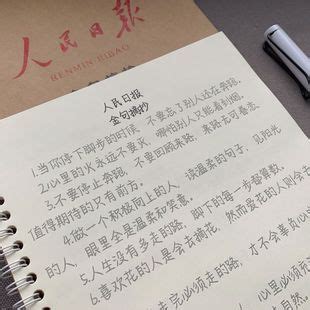 人民日报
RENMIN RIBAO
人民日报
金句摘抄
1.当你停下脚步的时候,不要忘了别人还在奔跑.
2.心里的火永远不要灭,哪怕别人只能看到烟.
3.不要停止奔跑,不要回顾来路,来路无可眷恋,
值得期待的只有前方.
4.做一个积极向上的人,读温柔的句子,见阳光
的人,眼里全是温柔和笑意.
5.人生没有多走的路,脚下的每一步都算数.
6.喜欢花的人是会去摘花,然而爱花的人则会去
完必须走的路,才不会辜负心
心里必须
自然.